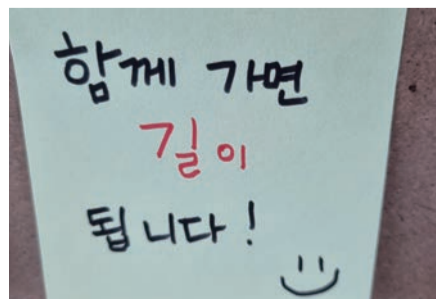 함께 가면
길이
됩니다!